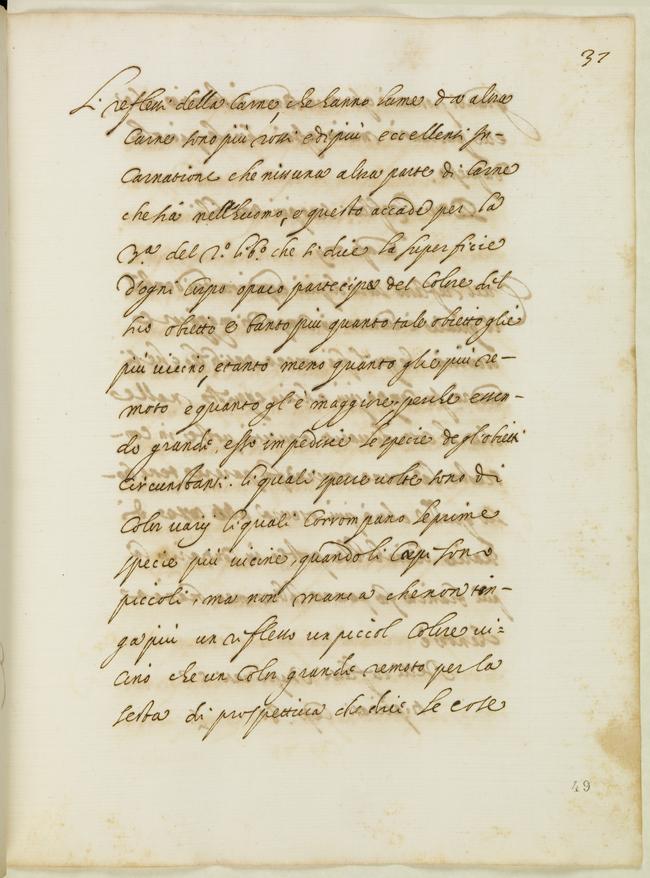 37
Li reflessi della Carne, che hanno lume da altra
Carne sono più rossi e di più eccellenti In-
Carnatione che nissuna altra parte di Carne
che sia nell'huomo, e questo accade per la
3.a del 2.o lib.o che ti dice la superficie
d'ogni Corpo opaco participa del Colore del
suo obietto e tanto più quanto tale obietto gliè
più vicino, e tanto meno quanto gliè più re-
moto e quanto gl'è maggiore, perche essen-
do grande, esso impedisce le specie degl'obietti
circunstanti. li quali spesse volte sono di
Color varij li quali Corrompano le prime
specie più vicine, quando li Corpi sono
piccoli, ma non manca che non tin-
ga più un riflesso un piccol Colore vi=
cino che un Color grande remoto per la
sesta di prospettiva che dice le cose
49